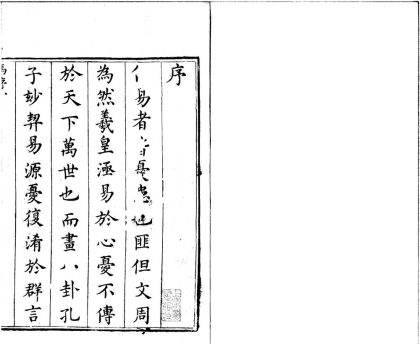 序
易者憂也匪但文周
為然羲皇涵易於心憂不傳
於天下萬世也而畫八卦孔
子妙契易源憂復淆於群言